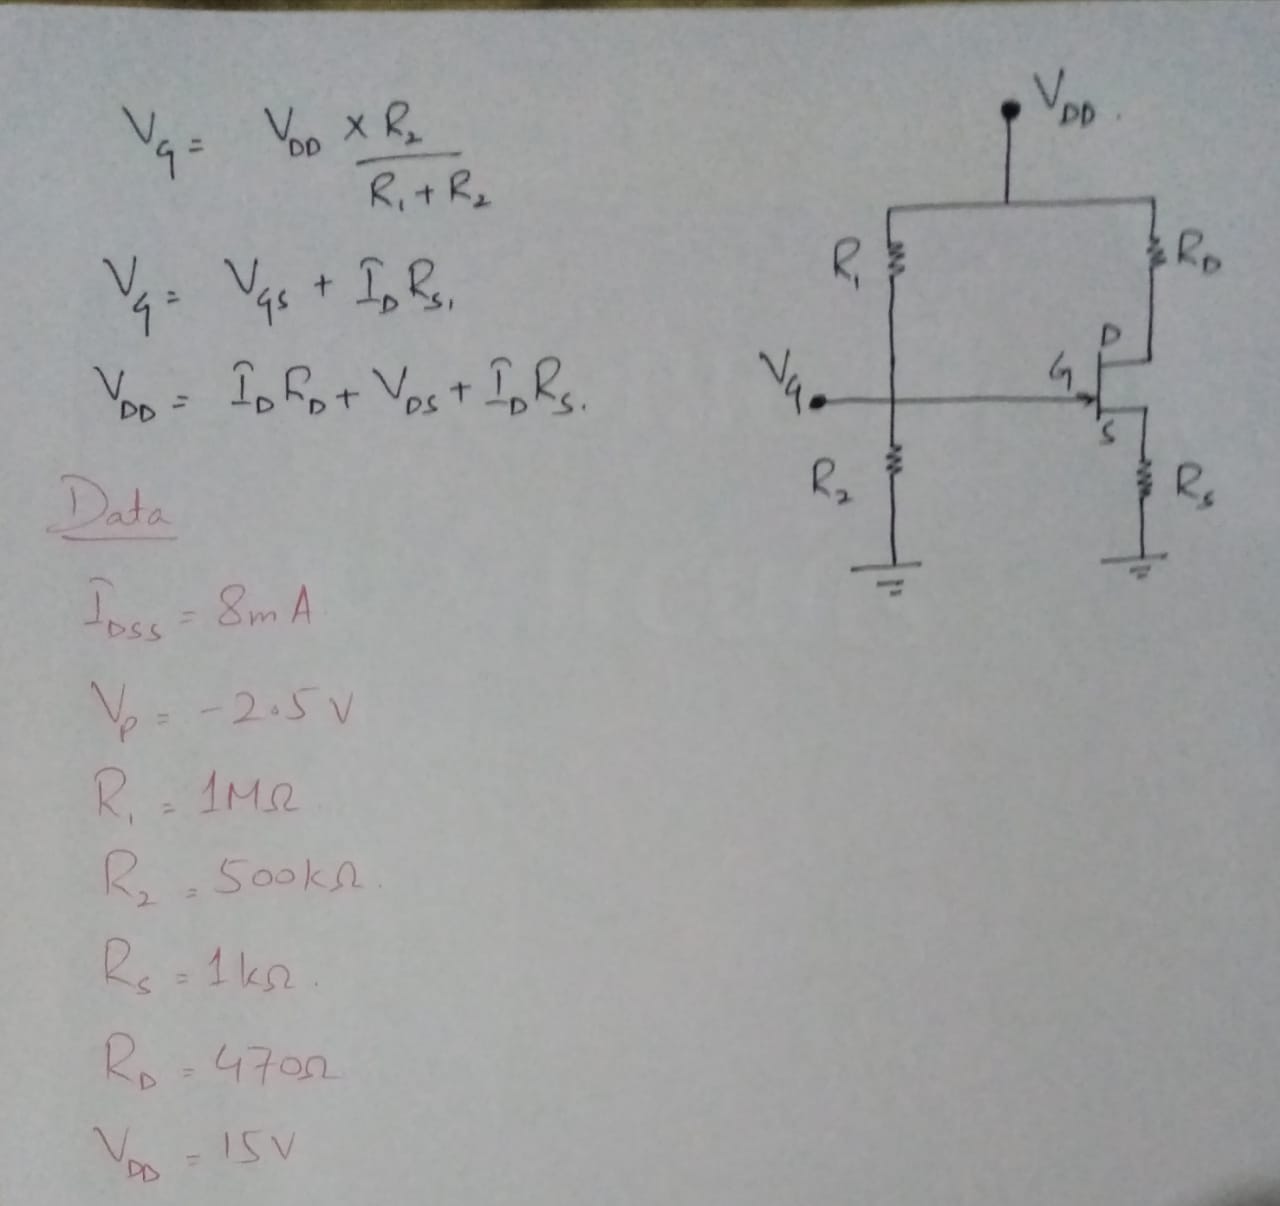 V_G = V_DD × R_2
R_1 + R_2
V_G = V_GS + I_D R_S.
V_DD = I_D R_D + V_DS + I_D R_S.
Data
I_DSS = 8mA
V_P = -2.5V
R_1 = 1MΩ
R_2 = 500kΩ.
R_S = 1kΩ.
R_D = 470Ω
V_DD = 15V
V_DD.
R_1
R_D
D
V_G
G
S
R_2
R_S